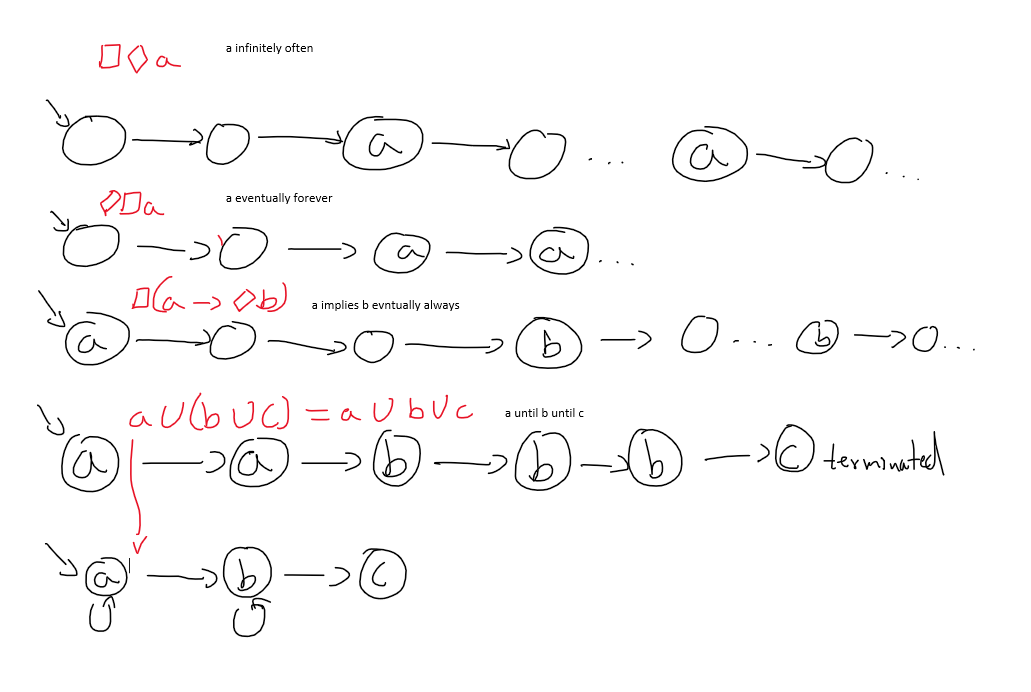 □◇a a infinitely often
a ... a ...
◇□a a eventually forever
a a ...
□(a → ◇b) a implies b evntually always
a b ... b ...
a U (b U c) = a U b U c a until b until c
a a b b b c terminated
a b c